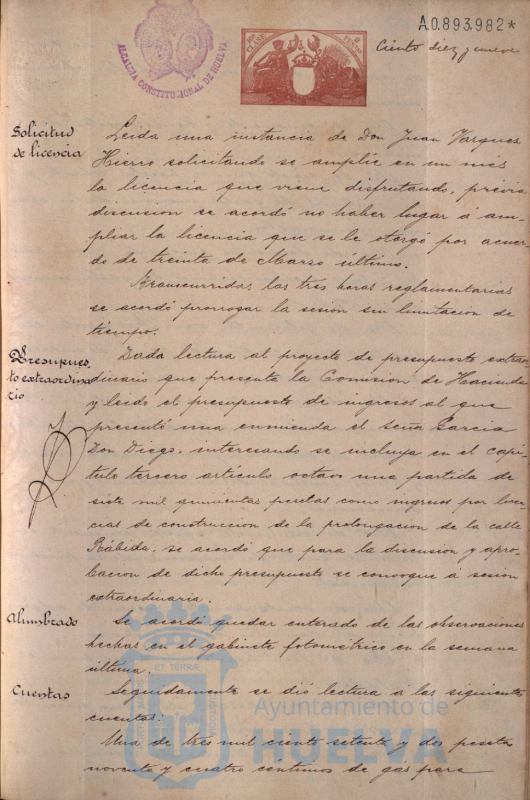 A.0.893.982*
Ciento diez y nueve
ALCALDIA CONSTITUCIONAL DE HUELVA
Solicitud
de licencia
Leida una instancia de Don Juan Vazquez
Hierro solicitando se amplie en un mes
la licencia que viene disfrutando, prévia
discusion se acordó no haber lugar á am-
pliar la licencia que se le otorgó por acuer-
do de treinta de Marzo último.
Transcurridas las tres horas reglamentarias
se acordó prorrogar la sesión sin limitacion de
tiempo.
Presupues-
to extraordina-
rio
Dada lectura al proyecto de presupuesto extraor-
dinario que presenta la Comisión de Hacienda
y leido el presupuesto de ingresos al que
presentó una enmienda el señor Garcia
Don Diego, interesando se incluya en el capi-
tulo tercero artículo octavo una partida de
siete mil quinientas pesetas como ingresos por licen-
cias de construccion de la prolongacion de la calle
Rábida, se acordó que para la discusion y apro-
bacion de dicho presupuesto se convoque á sesión
extraordinaria.
Alumbrado
Se acordó quedar enterado de las observaciones
hechas en el gabinete fotométrico en la semana
última.
Cuentas
Seguidamente se dió lectura á las siguientes
cuentas:
Una de tres mil ciento setenta y dos pesetas
noventa y cuatro centimos de gas para
Ayuntamiento de
HUELVA